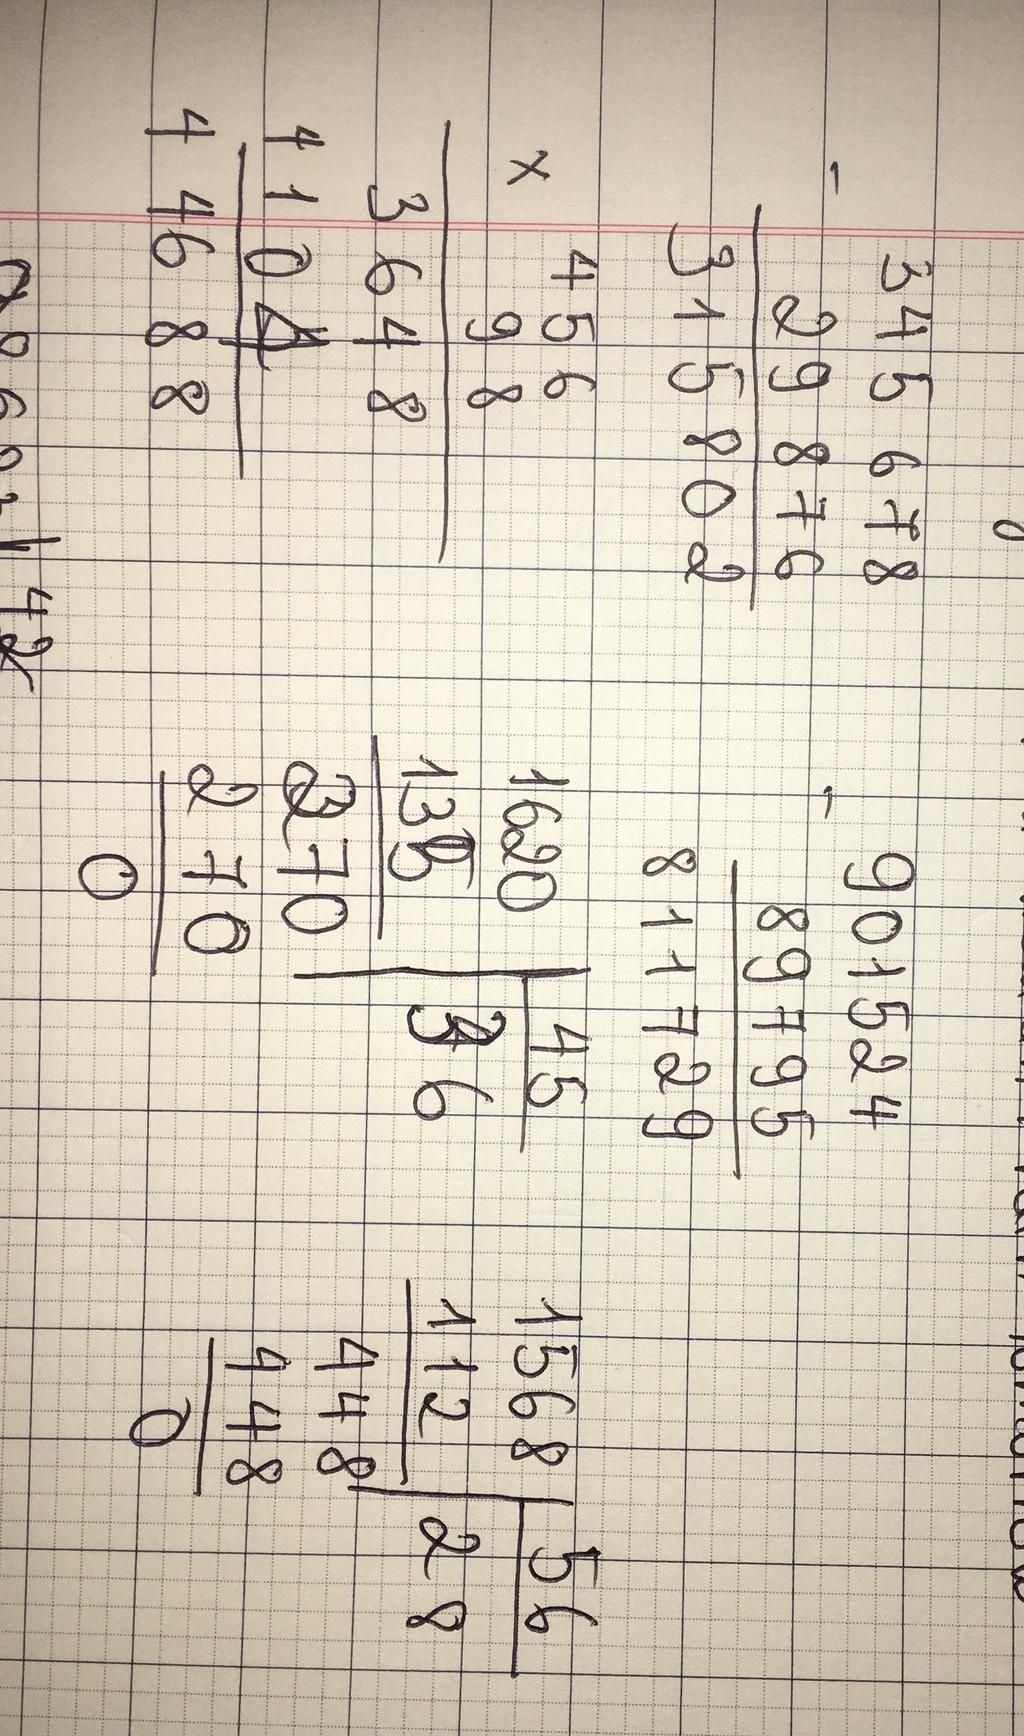 345678
- 29876
315802
901524
- 89795
811729
456
x 98
3648
4104
44688
1620 45
135 36
270
270
0
1568 56
112 28
448
448
0
42